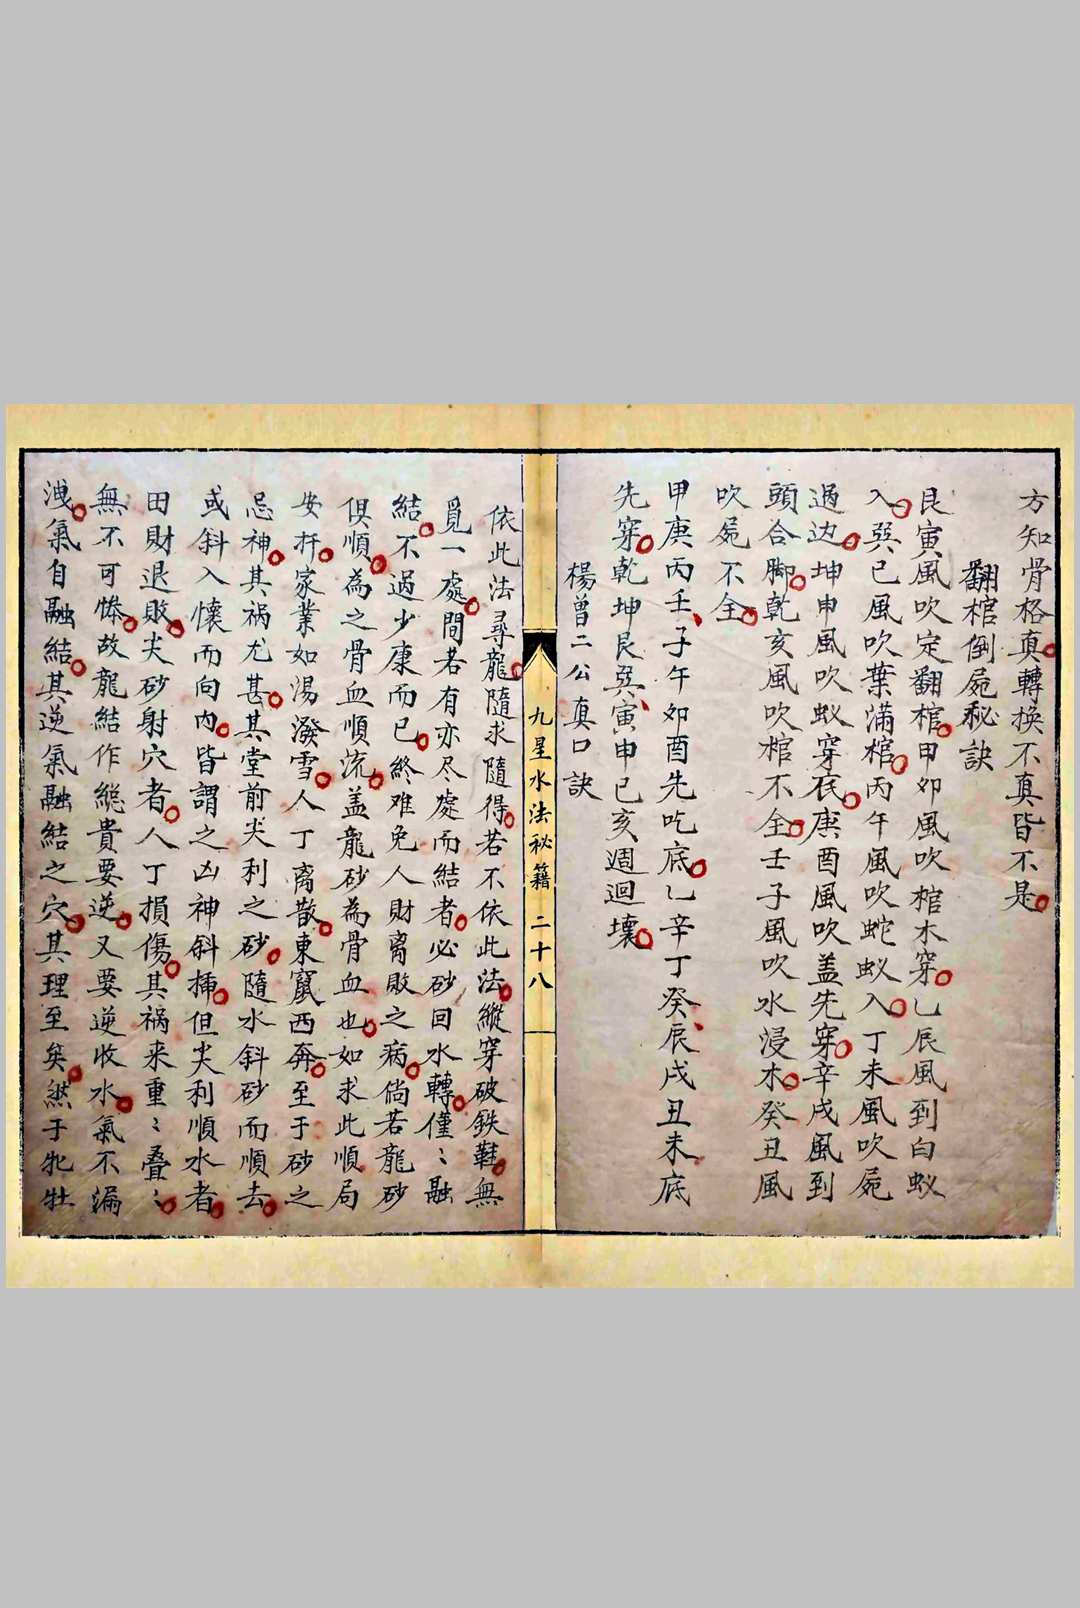 方知骨格真轉換不真皆不是
翻棺倒屍秘訣
艮寅風吹定翻棺甲卯風吹棺木穿乙辰風到白蚁
入巽巳風吹葉滿棺丙午風吹蛇蚁入丁未風吹屍
過边坤申風吹蚁穿底庚酉風吹盖先穿辛戌風到
頭合脚乾亥風吹棺不全壬子風吹水浸木癸丑風
吹屍不全
甲庚丙壬子午卯酉先吃底乙辛丁癸辰戌丑未底
先穿乾坤艮巽寅申巳亥週迴壞
楊曾二公真口訣
九星水法秘籍 二十八
依此法尋龍隨求隨得若不依此法縱穿破鉄鞋無
覓一處間若有亦尽處而結者必砂回水轉僅〻融
結不過少康而已終难免人財离敗之病倘若龍砂
俱順為之骨血順流盖龍砂為骨血也如求此順局
安扦家業如湯潑雪人丁离散東竄西奔至于砂之
忌神其祸尤甚其堂前尖利之砂隨水斜砂而順去
或斜入懷而向內皆謂之凶神斜揷但尖利順水者
田財退敗尖砂射穴者人丁損傷其祸来重〻叠〻
無不可惨故龍結作緃貴要逆又要逆收水氣不漏
洩氣自融結其逆氣融結之穴其理至矣然于牝牡